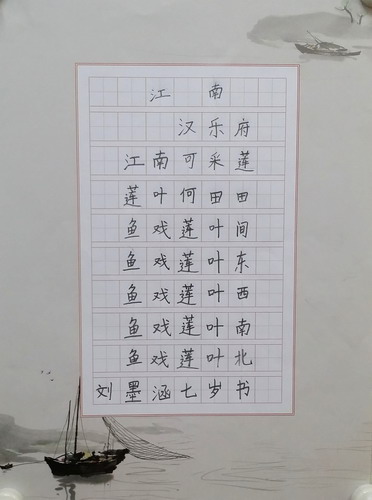 江南
汉乐府
江南可采莲
莲叶何田田
鱼戏莲叶间
鱼戏莲叶东
鱼戏莲叶西
鱼戏莲叶南
鱼戏莲叶北
刘墨涵七岁书